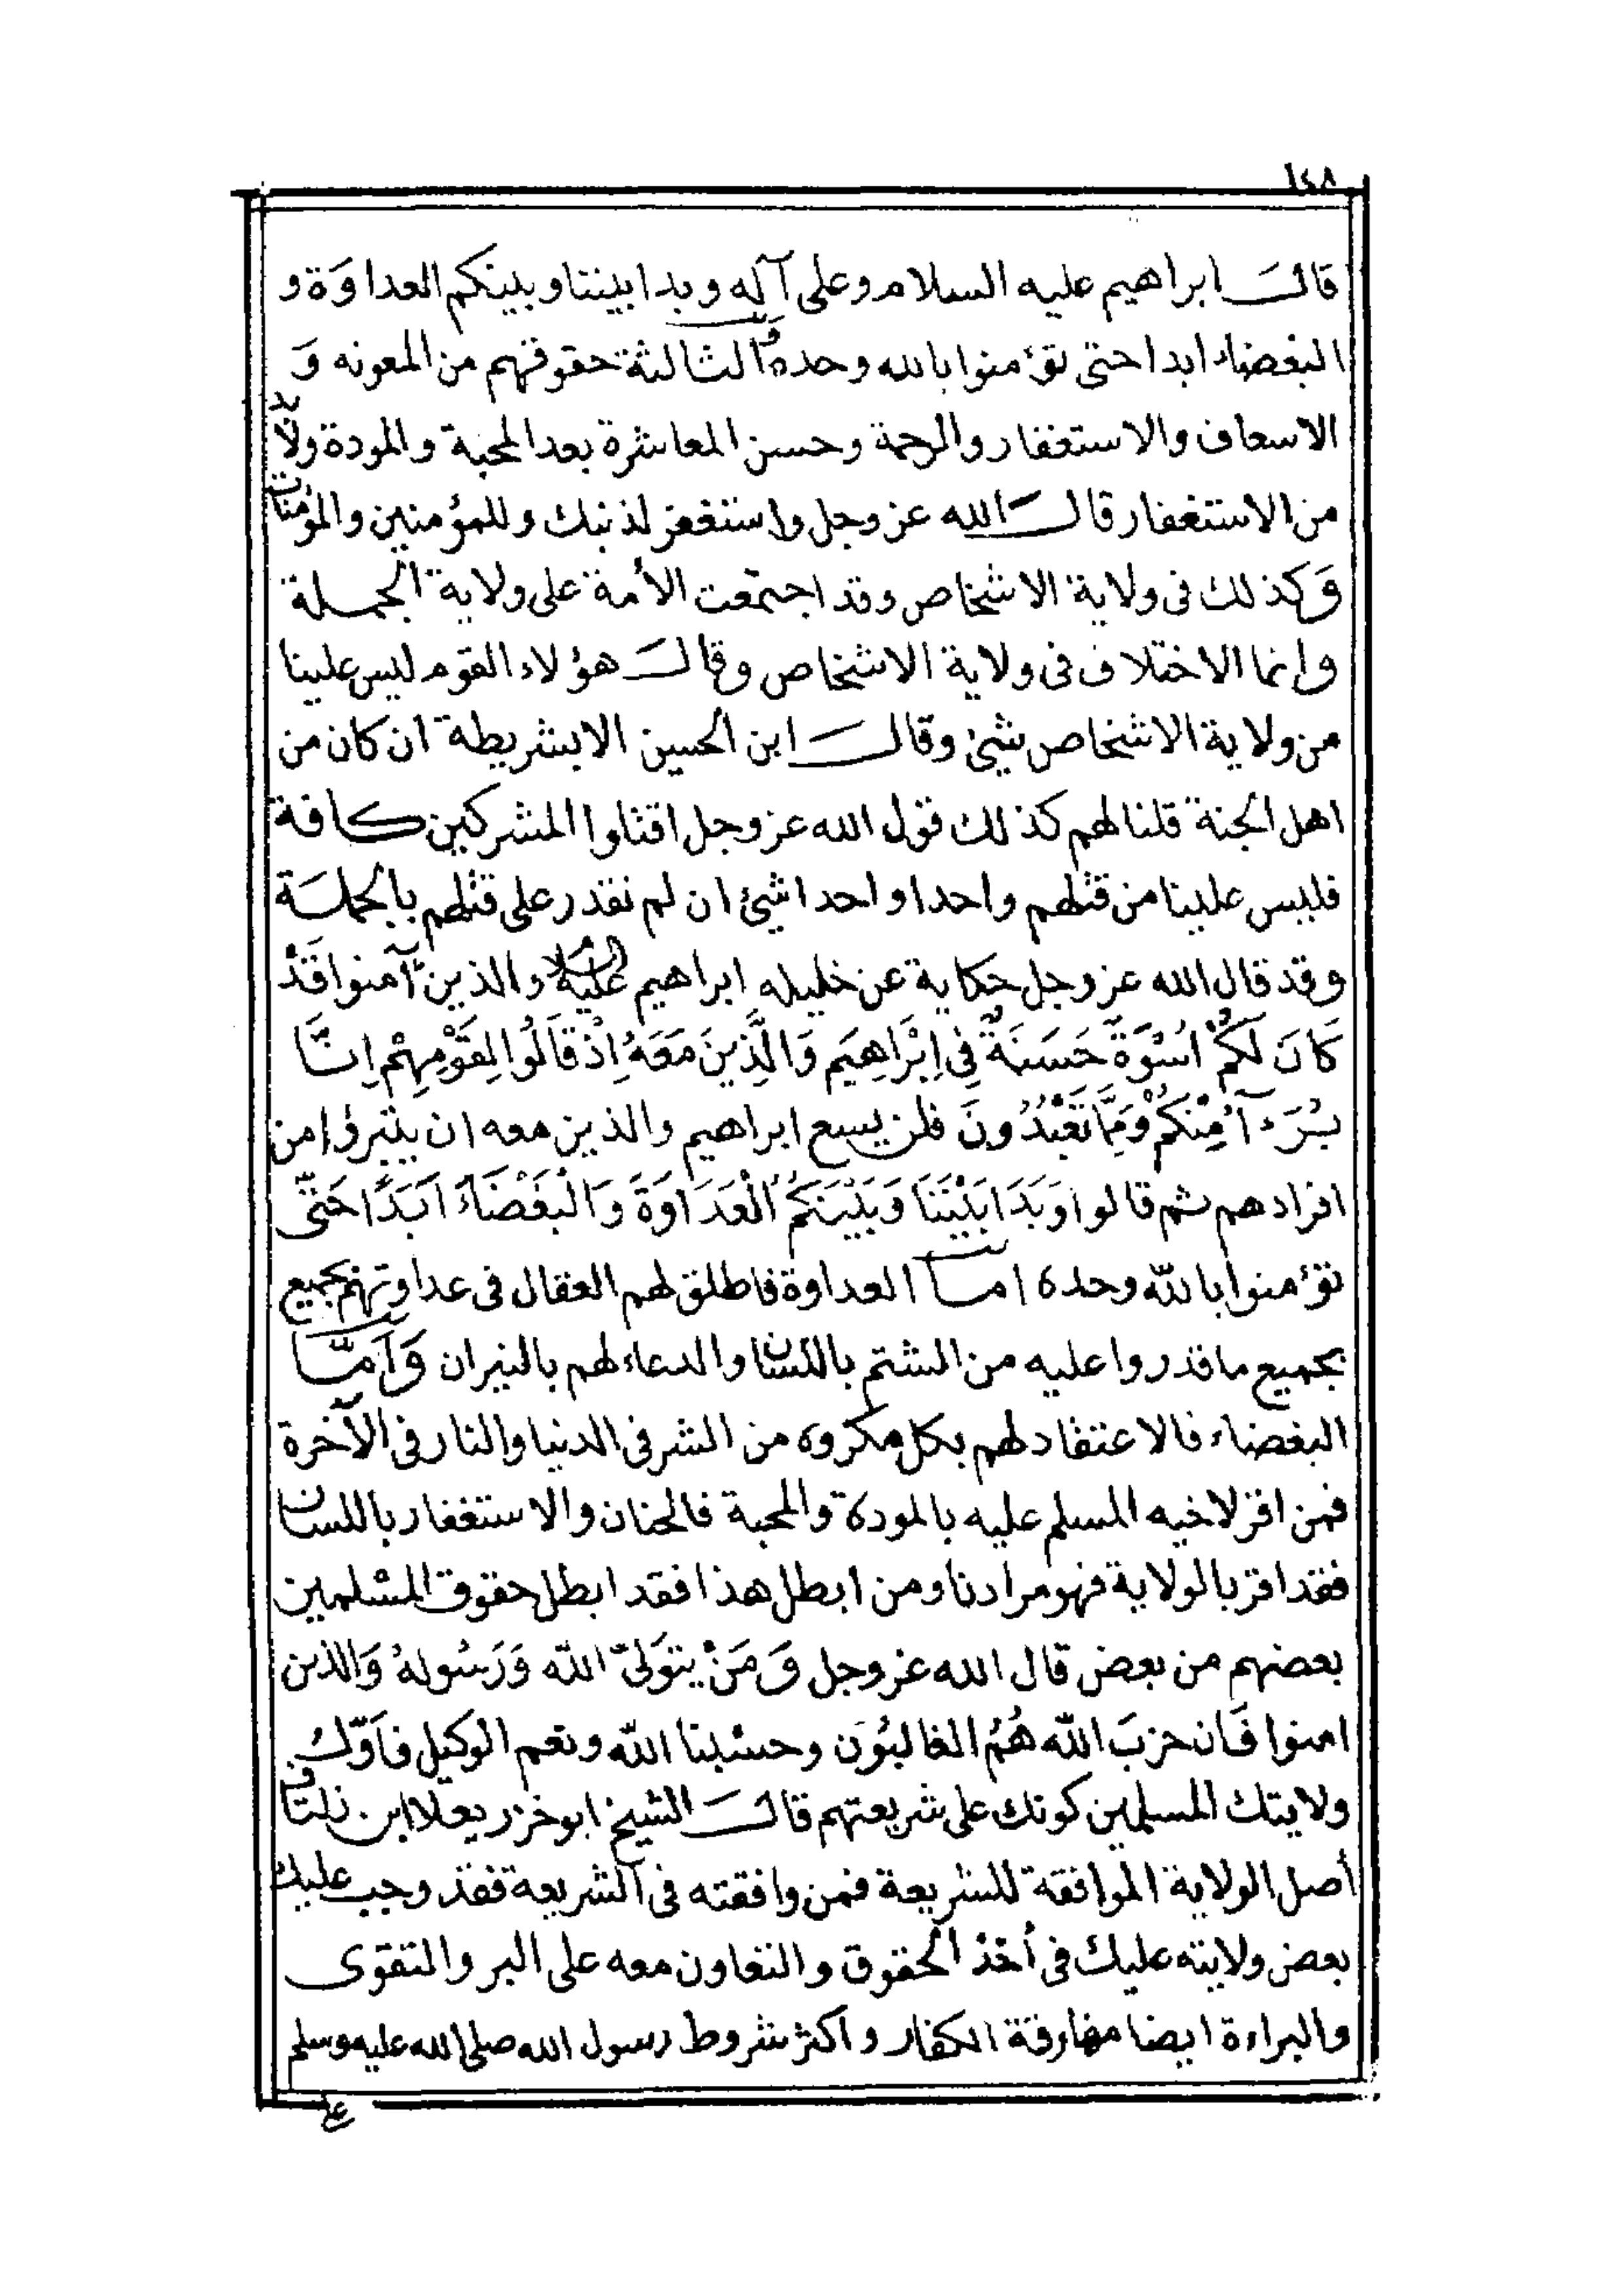 ١٤٨
قال ابراهيم عليه السلام وعلى آله وبدا بيننا وبينكم العداوَة و
البغضاء ابدا حتى تؤمنوا بالله وحده والثالثة حقوقهم من المعونه وَ
الاسعاف والاستغفار والرحمة وحسن المعاشرة بعد المحبة والمودة ولابد
من الاستغفار قال الله عز وجل واستغفر لذنبك وللمؤمنين والمؤمنات
وَكذلك فى ولاية الاشخاص وقد اجتمعت الأمة على ولاية الجملة
وانما الاختلاف فى ولاية الاشخاص وقال هؤلاء القوم ليس علينا
من ولاية الاشخاص شئ وقال ابن الحسين الا بشريطة ان كان من
اهل الجنة قلنا لهم كذلك قول الله عز وجل اقتلوا المشركين كافة
فليس علينا من قتلهم واحدا واحدا شئ ان لم نقدر على قتلهم بالجملَة
وقد قال الله عز وجل حكاية عن خليله ابراهيم عليه السلام والذين آمنوا قَدْ
كَانَ لَكُمْ اُسْوَةٌ حَسَنَةٌ فِي اِبْرَاهِيمَ وَالَّذِينَ مَعَهُ اِذْ قَالُوا لِقَوْمِهِمْ اِنَّا
بُرَءَآ مِنْكُمْ وَمِمَّا تَعْبُدُونَ فلن يسع ابراهيم والذين معه ان يتبرؤا من
افرادهم ثم قالوا وَبَدَا بَيْنَنَا وَبَيْنَكُمُ الْعَدَاوَةَ وَالْبَغْضَاءَ اَبَدًا حَتَّى
تؤمنوا بالله وحده اما العداوة فاطلق لهم العقال فى عداوتهم بجميع
بجميع ما قدروا عليه من الشتم باللسان والدعاء لهم بالنيران وَاَمَّا
البغضاء فالاعتقاد لهم بكل مكروه من الشر فى الدنيا والنار فى الآخرة
فمن اقر لاخيه المسلم عليه بالمودة والمحبة فالجنان والاستغفار باللسان
فقد اقر بالولاية فهو مرادنا ومن ابطل هذا فقد ابطل حقوق المسلمين
بعضهم من بعض قال الله عز وجل وَمَنْ يتوَلىّ الله وَرَسُولهُ وَالذين
امنوا فَان حزبَ الله هُمُ الغالبُوَن وحسْبنا الله ونعم الوكيل فاَوّل
ولايتك المسلمين كونك على شريعتهم قال الشيخ ابو خزر يعلا ابن زلتاف
أصل الولاية الموافقة للشريعة فمن وافقته فى الشريعة فقد وجب عليك
بعض ولايته عليك فى أخذ الحقوق والتعاون معه على البر والتقوى
والبراءة ايضا مفارقة الكفار واكثر شروط رسول الله صلى الله عليه وسلم